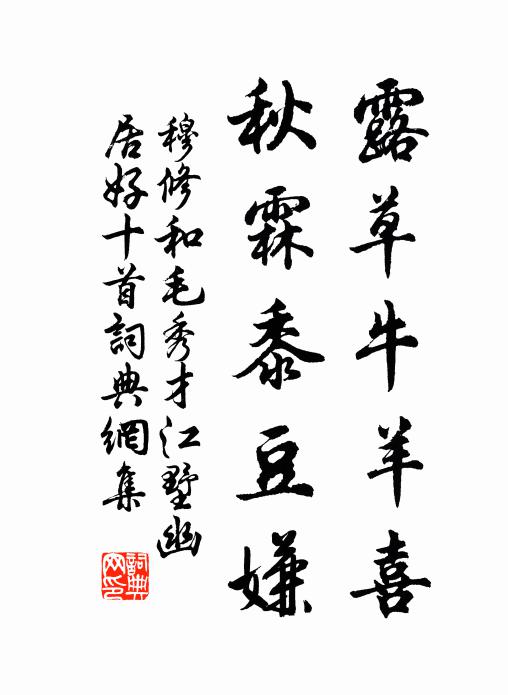 露草牛羊喜
秋霖黍豆嫌
穆修和毛秀才江墅幽
居好十首詞典網集
詞典
网印